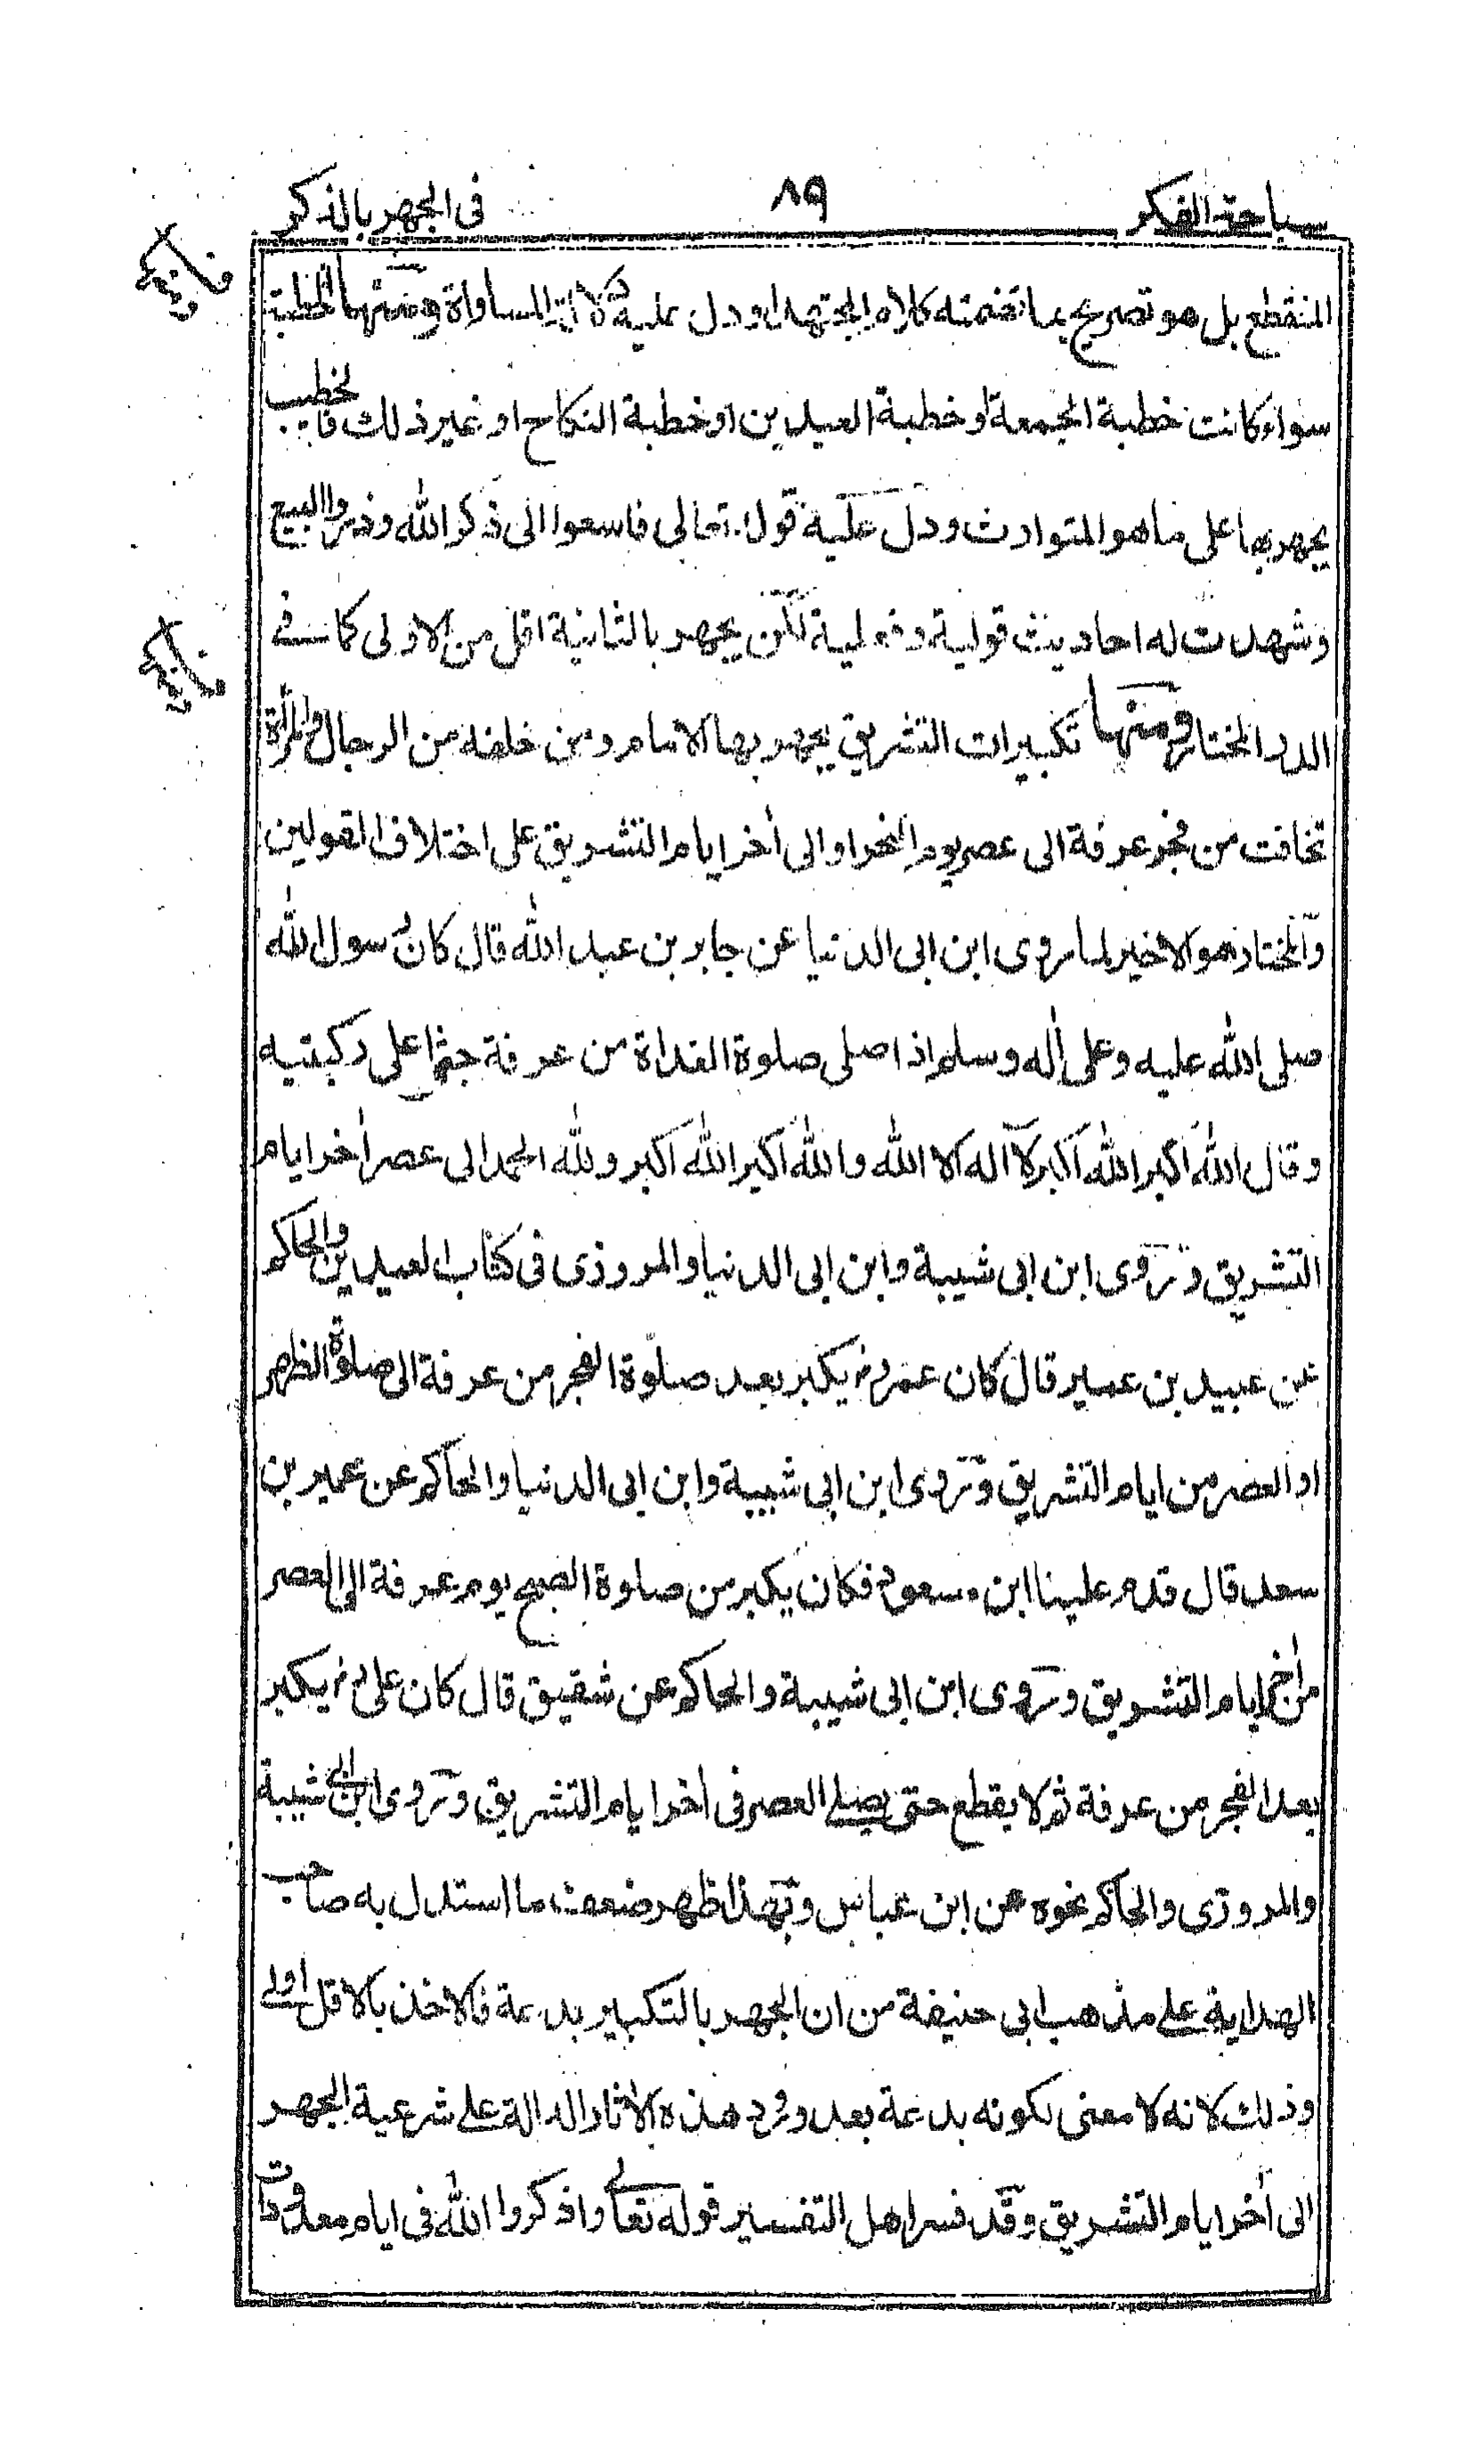 سباحة الفكر ٨٩ فى الجهر بالذكر
المنقطع بل هو تصريح بما تضمنه كلام المجتهد او دل عليه دلالة المساواة ومنها الخطبة
سواء كانت خطبة الجمعة او خطبة العيدين او خطبة النكاح او غير ذلك فالخطيب
يجهر بها على ما هو المتوارث ودل عليه قوله تعالى فاسعوا الى ذكر الله وذروا البيع
وشهدت له احاديث قولية وفعلية لكن يجهر بالثانية اقل من الاولى كما فى
الدر المختار ومنها تكبيرات التشريق يجهر بها الامام ومن خلفه من الرجال والمرأة
تخافت من فجر عرفة الى عصر يوم النحر او الى أخر ايام التشريق على اختلاف القولين
والمختار هو الاخير لما روى ابن ابى الدنيا عن جابر بن عبد الله قال كان رسول الله
صلى الله عليه وعلى أله وسلم اذا صلى صلوة الغداة من عرفة جثا على ركبتيه
وقال الله اكبر الله اكبر لا آله الا الله والله اكبر الله اكبر ولله الحمد الى عصر أخر ايام
التشريق وروى ابن ابى شيبة وابن ابى الدنيا والمروزى فى كتاب العيدين والحاكم
عن عبيد بن عمير قال كان عمر رض يكبر بعد صلوة الفجر من عرفة الى صلوة الظهر
او العصر من ايام التشريق وروى ابن ابى شيبة وابن ابى الدنيا والحاكم عن عمير بن
سعد قال قدم علينا ابن مسعود فكان يكبر من صلوة الصبح يوم عرفة الى العصر
من أخر ايام التشريق وروى ابن ابى شيبة والحاكم عن شقيق قال كان على رض يكبر
بعد الفجر من عرفة ثم لا يقطع حتى يصلى العصر فى أخر ايام التشريق وروى ابن ابى شيبة
والمروزى والحاكم نحوه عن ابن عباس وبهذا ظهر ضعف ما استدل به صاحب
الهداية على مذهب ابى حنيفة من ان الجهر بالتكبير بدعة فالاخذ بالاقل اولى
وذلك لانه لا معنى لكونه بدعة بعد ورود هذه الأثار الدالة على شرعية الجهر
الى أخر ايام التشريق وقد فسر اهل التفسير قوله تعالى واذكروا الله فى ايام معدودات